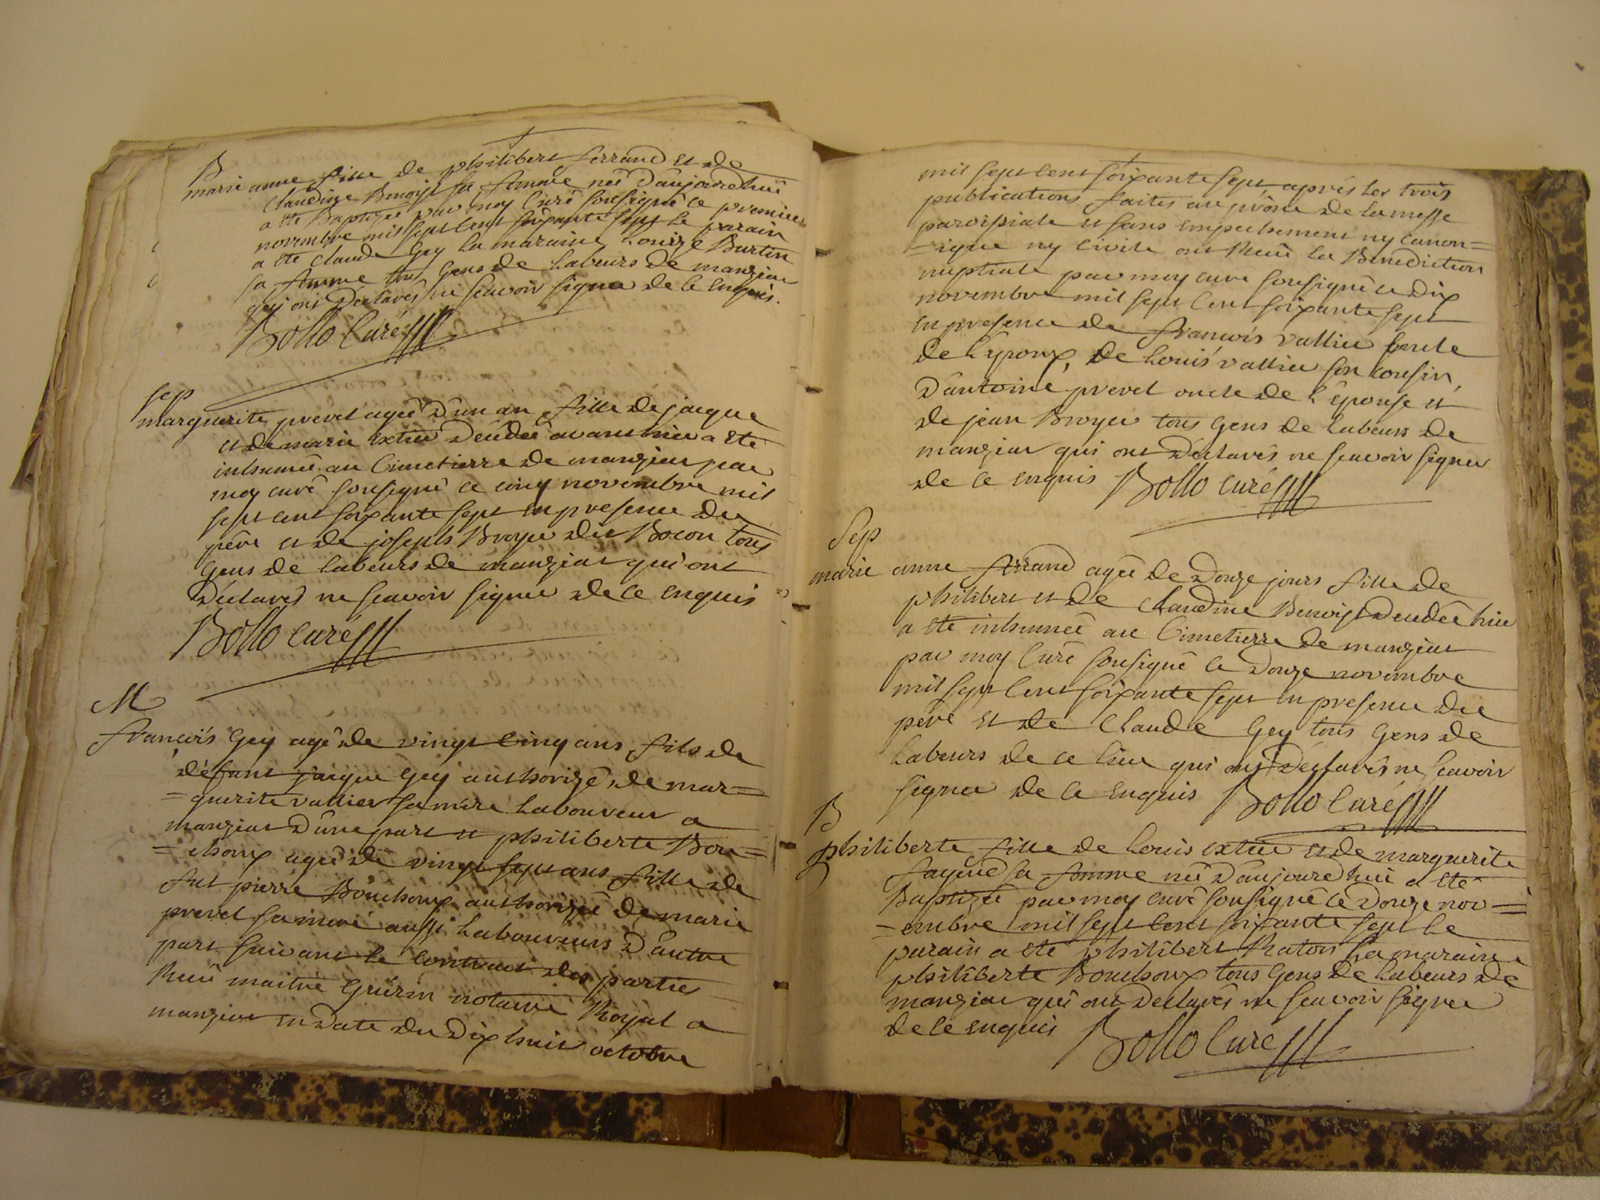 B
marie anne fille de philibert ferrand et de
Claudine Benoist sa femme née d'aujourdhui
a ete Baptizée par moy Curé sousigné ce premier
novembre mil sept cent soixante sept le parain
a ete Claude Gey la maraine Louize Burtin
sa femme tous Gens de Labeurs de manziat
qui ont Declarés ne scavoir signer de ce enquis.
Bollo Curé
Sep
marguerite prevel agée D'un an fille de jacque
et de marie extier Décédée avant hier a ete
inhumée au Cimetierre de manziat par
moy curé sousigné ce cinq novembre mil
sept cent soixante sept en presence du
père et de joseph Broyer dit Bocon tous
Gens de Labeurs de manziat qui ont
Déclarés ne scavoir signer de ce enquis
Bollo curé
M
francois Gey agé de vingt cinq ans fils de
défunt jacque Gey authorizé de mar=
=guerite vallier sa mere Laboureur a
manziat D'une part et philiberte Bou=
=choux agée de vingt sept ans fille de
fut pierre Bouchoux authorizée de marie
prevel sa mere aussi Laboureurs D'autre
part suivant le contract des parties
Recu maitre Guérin notaire Royal a
manziat en Date du Dix huit octobre
mil sept cent soixante sept après les trois
publications faites au prône de la messe
paroissiale et sans empechement ny canon=
=ique ny civile ont Recu la Benediction
nuptiale par moy curé sousigné ce dix
novembre mil sept cent soixante sept
en presence de francois vallier oncle
de l'epoux, de Louis vallier son cousin,
D'antoine prevel oncle de l'epouse et
de jean Broyer tous Gens de Labeurs de
manziat qui ont Déclarés ne scavoir signer
de ce enquis Bollo curé
Sep
marie anne ferrand agée de Douze jours fille de
philibert et de Claudine Benoist Décédée hier
a ete inhumée au Cimetierre de manziat
par moy Curé sousigné ce Douze novembre
mil sept cent soixante sept en presence du
père et de Claude Gey tous Gens de
Labeurs de ce lieu qui ont Déclarés ne scavoir
signer de ce enquis Bollo Curé
B
philiberte fille de Louis extier et de marguerite
sa femme née D'aujourdhui a ete
Baptizée par moy curé sousigné ce Douze nov=
=embre mil sept cent soixante sept le
parain a ete philibert Raton La maraine
philiberte Bouchoux tous Gens de Labeurs de
manziat qui ont Declarés ne scavoir signer
de ce enquis Bollo Curé